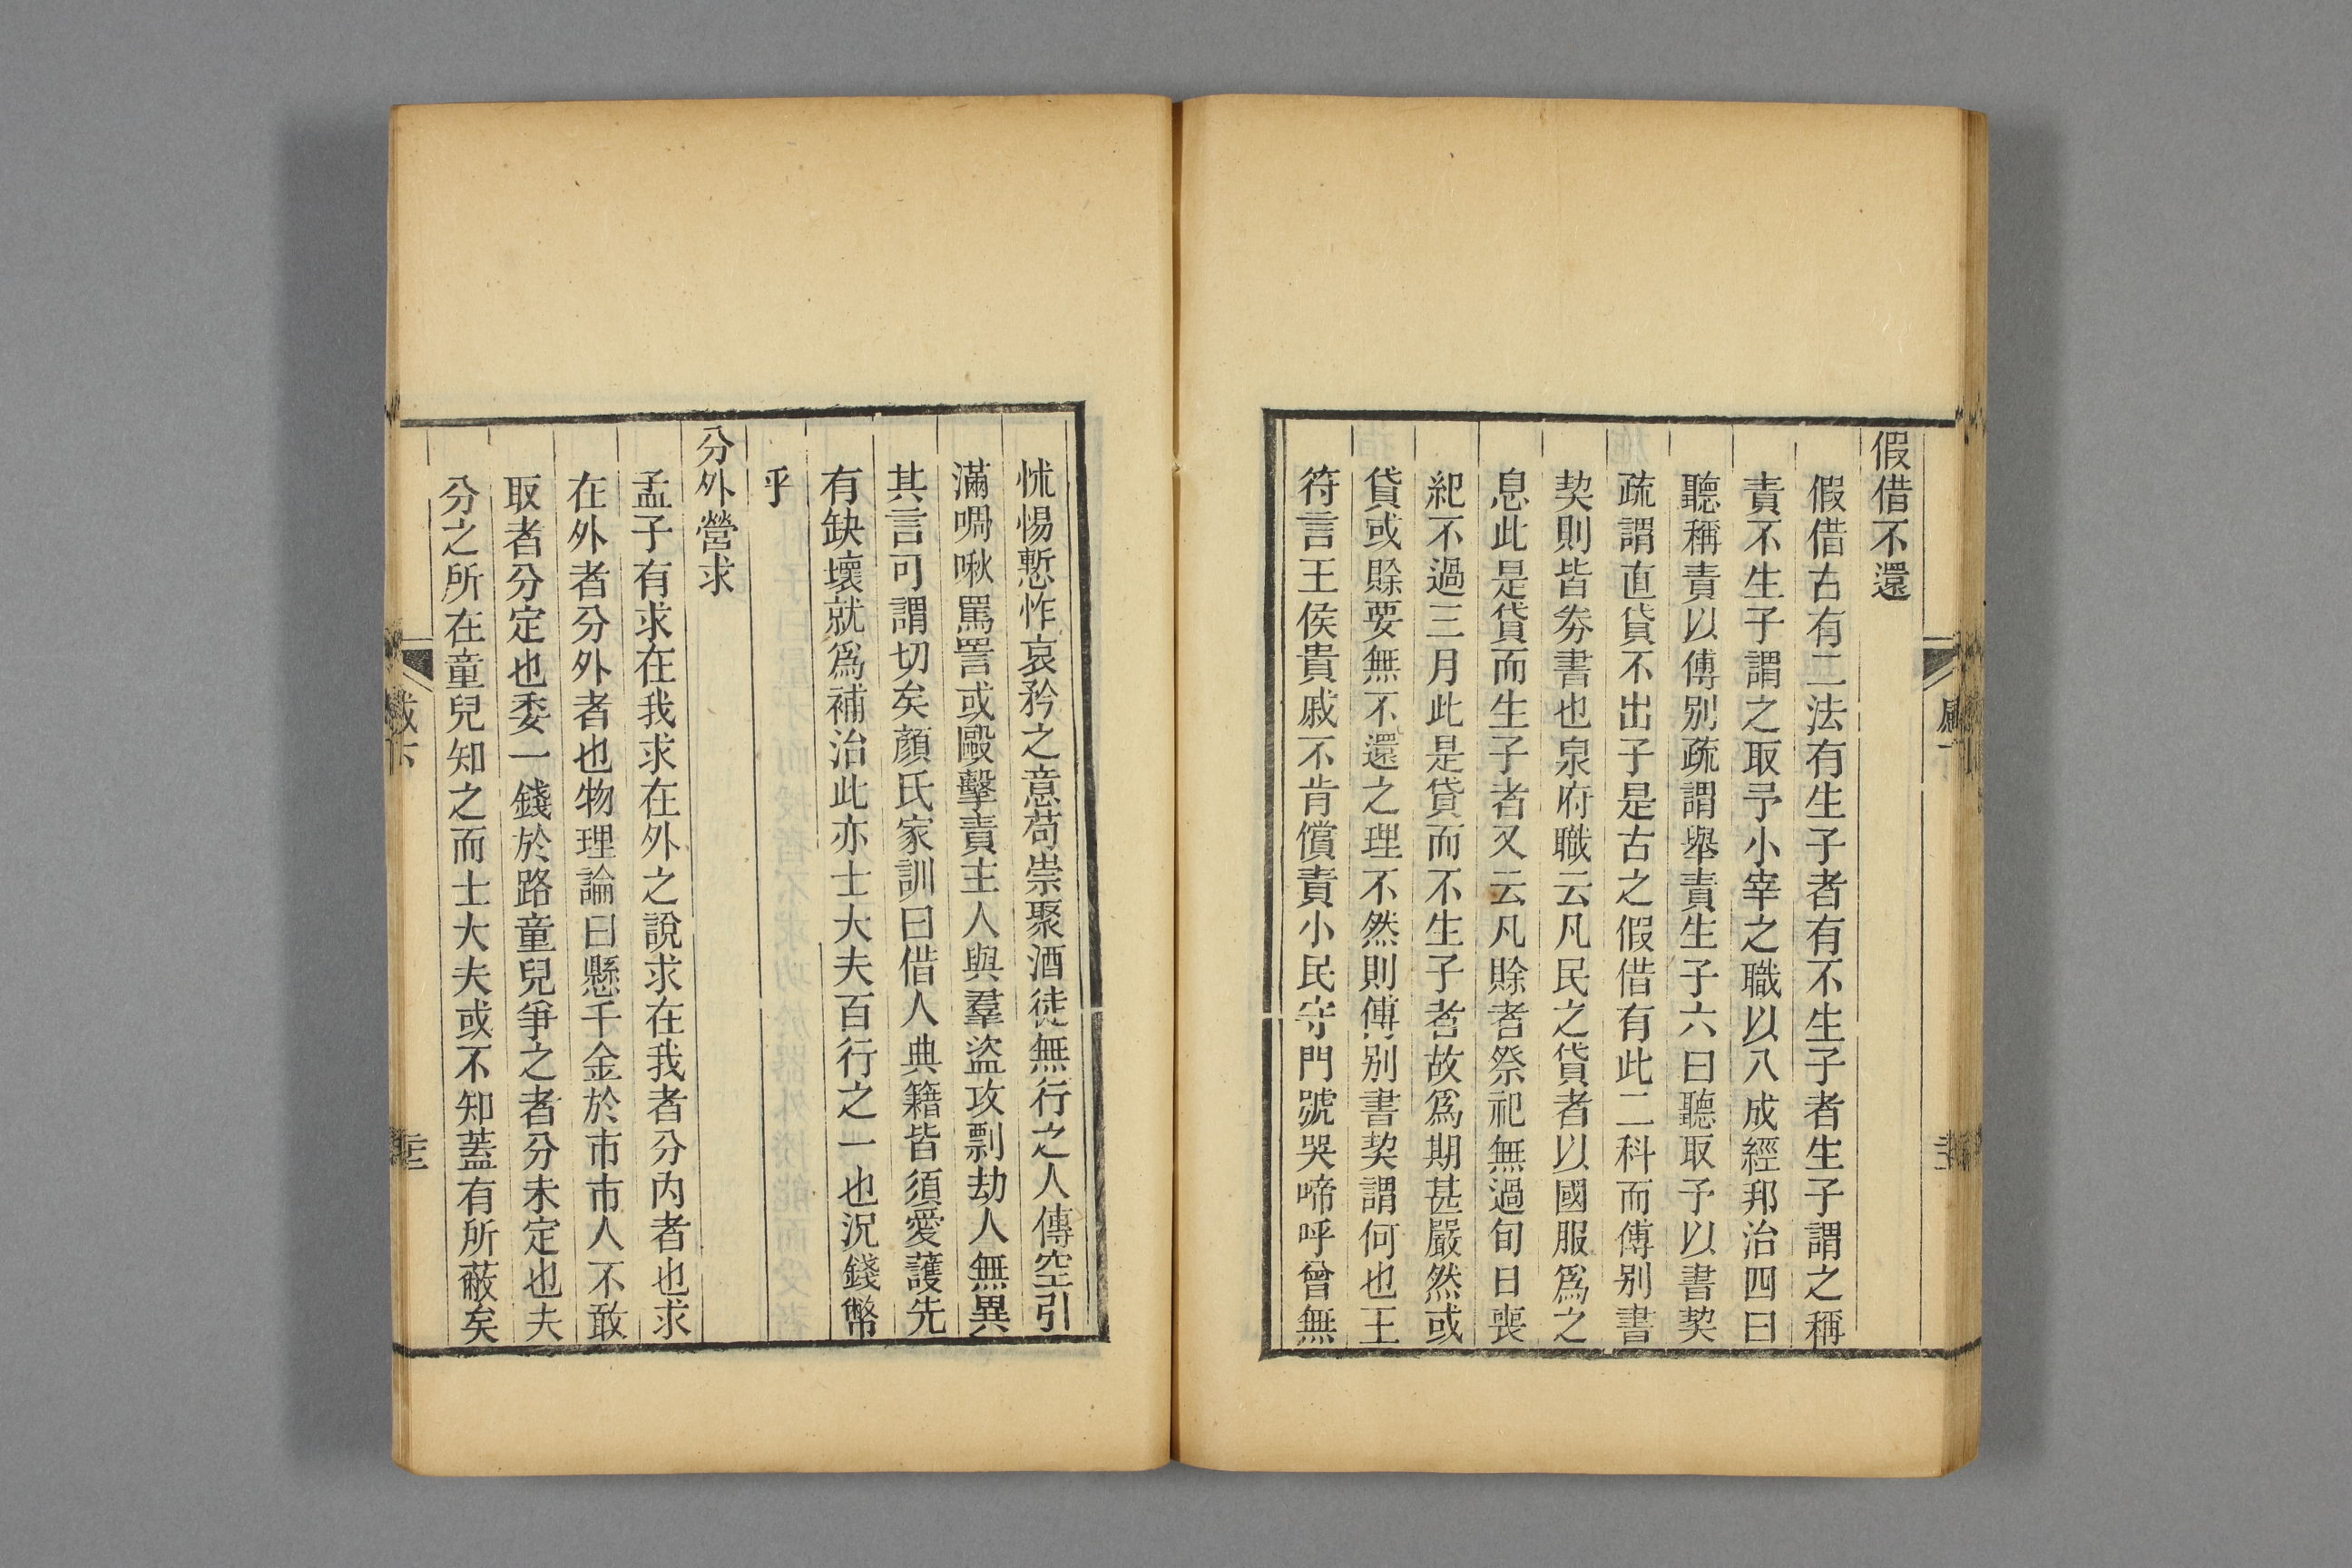 假借不還
假借古有二法有生子者有不生子者生子謂之稱
責不生子謂之取予小宰之職以八成經邦治四曰
聽稱責以傅別疏謂舉責生子六曰聽取予以書契
疏謂直貸不出子是古之假借有此二科而傅別書
契則皆券書也泉府職云凡民之貸者以國服爲之
息此是貸而生子者又云凡賖者祭祀無過旬日喪
紀不過三月此是貸而不生子者故爲期甚嚴然或
貸或賖要無不還之理不然則傅别書契謂何也王
符言王侯貴戚不肯償責小民守門號哭啼呼曾無
怵惕慙怍哀矜之意苟崇聚酒徒無行之人傳空引
滿啁啾罵詈或毆擊責主人與羣盜攻剽劫人無異
其言可謂切矣顏氏家訓曰借人典籍皆須愛護先
有缺壞就爲補治此亦士大夫百行之一也況錢幣
乎
分外營求
孟子有求在我求在外之說求在我者分内者也求
在外者分外者也物理論曰懸千金於市市人不敢
取者分定也委一錢於路童兒爭之者分未定也夫
分之所在童兒知之而士大夫或不知蓋有所蔽矣